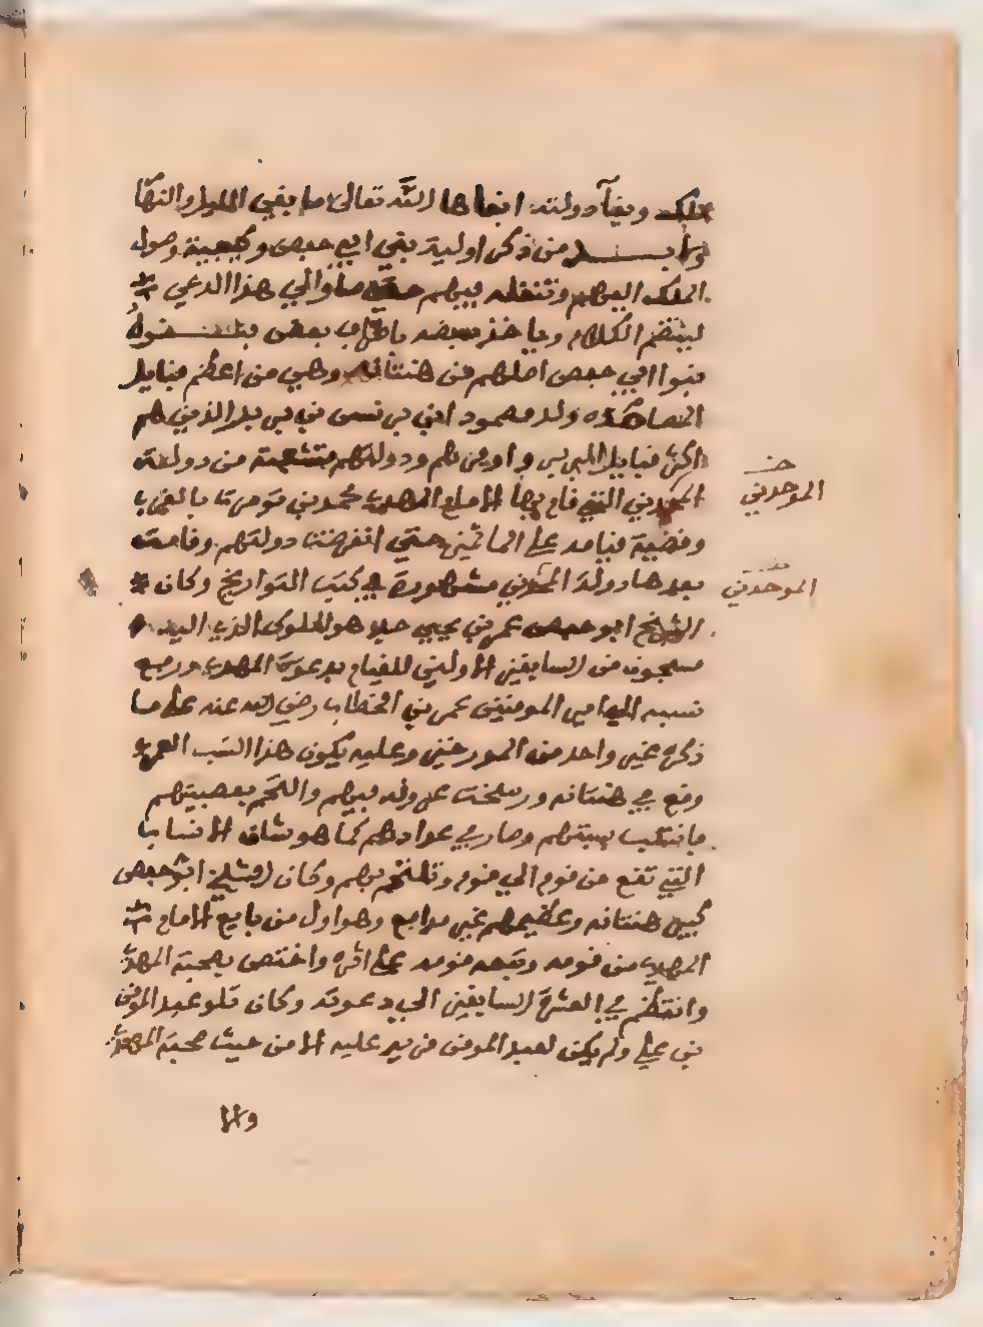 ملك وبقآ دولته ابقاها الله تعالى ما بقي الليل والنها
ولا بد من ذكر اولية بني ابي حفص وكيفية وصول
الملك اليهم وتنقله بينهم حتى صار الي هذا الدعي
لينتظم الكلام وياخذ بعضه باطراب بعض فنقول
بنوا ابي حفص اصلهم من هنتاته وهي من اعظم قبايل
المصامده ولد مصمود ابن بر نسى بن بر الذين هم
اكثر قبايل البربر واوفرهم ودولتهم متشعبة من دولة
الموحدين التي قام بها الامام المهدي محمد بن تومرت بالغرب
وقضية قيامه على الملثمين حتى انقرضت دولتهم وقامت
بعدها دولة الموحدين مشهورة في كتب التواريخ وكان
الشيخ ابو حفص عمر بن يحيى جد هولا الملوك الذي اليه
ينسبون من السابقين الاولين للقيام بدعوة المهدي ورفع
نسبه الى امير المومنين عمر بن الخطاب رضي الله عنه على ما
ذكره غير واحد من المورخين وعليه يكون هذا النسب العمري
وقع في هنتاته ورسخت عروقه بينهم والتحم بعصبيتهم
فانتسب بنسبتهم وصار في عدادهم كما هو شان الانساب
التي تقع من قوم الى قوم وتلتحم بهم وكان الشيخ ابو حفص
كبير هنتاته وعظيمهم غير مدافع وهو اول من بايع الامام
المهدي من قومه وتبعه قومه على اثره واختص بصحبة المهدي
وانتظم في العشرة السابقين الى دعوته وكان تلو عبد المومن
بن علي ولم يكن لعبد المومن مزيد عليه الا من حيث صحبة المهدي
والا
الموحدين
الموحدين